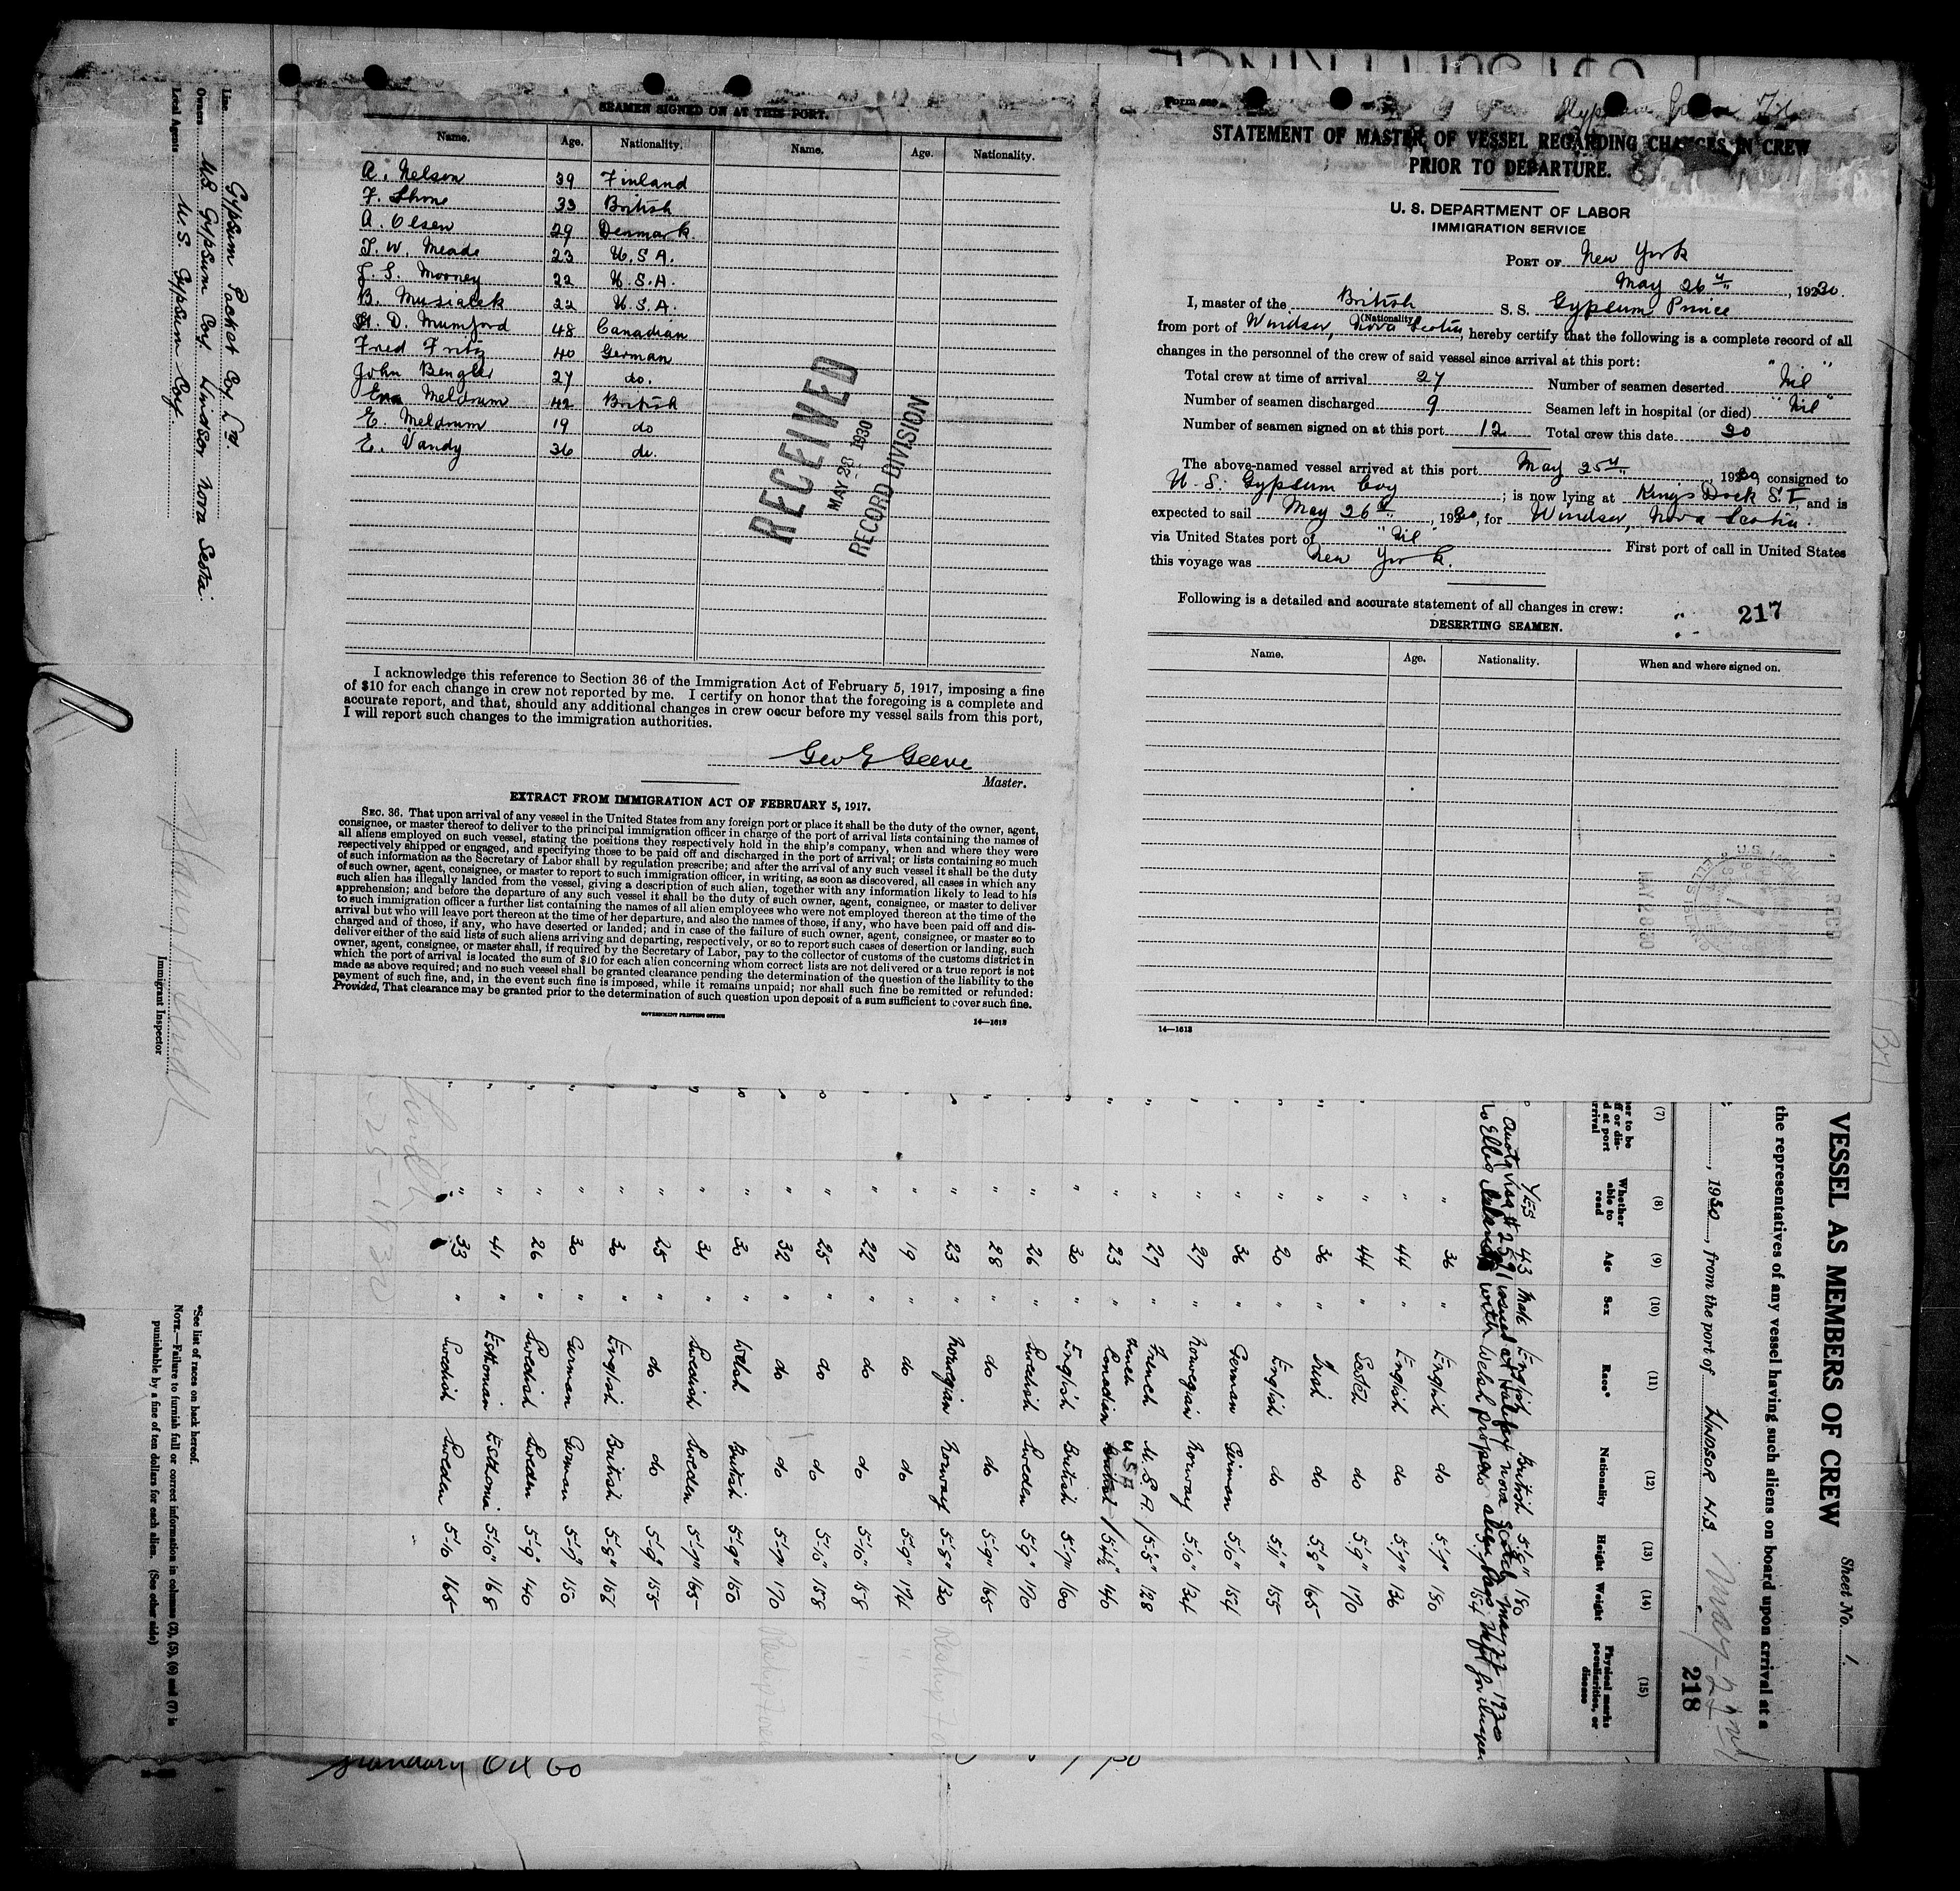 SEAMEN SIGNED ON AT THIS PORT.
Name. Age. Nationality. Name. Age. Nationality.
A. Nelson 39 Finland
F. Shone 33 British
A. Olsen 29 Denmark.
T. W. Meade 23 U.S.A.
J. S. Mooney 22 U.S.A.
B. Musialek 22 U.S.A.
H. D. Mumford 48 Canadian
Fred Fritz 40 German
John Bengler 27 do.
Meldrum 42 British
E. Meldrum 19 do
E. Vandy 36 do.
RECEIVED
MAY 28 1930
RECORD DIVISION
I acknowledge this reference to Section 36 of the Immigration Act of February 5, 1917, imposing a fine
of $10 for each change in crew not reported by me. I certify on honor that the foregoing is a complete and
accurate report, and that, should any additional changes in crew occur before my vessel sails from this port,
I will report such changes to the immigration authorities.
Geo E Geeve
Master.
EXTRACT FROM IMMIGRATION ACT OF FEBRUARY 5, 1917.
SEC. 36. That upon arrival of any vessel in the United States from any foreign port or place it shall be the duty of the owner, agent,
consignee, or master thereof to deliver to the principal immigration officer in charge of the port of arrival lists containing the names of
all aliens employed on such vessel, stating the positions they respectively hold in the ship's company, when and where they were
respectively shipped or engaged, and specifying those to be paid off and discharged in the port of arrival; or lists containing so much
of such information as the Secretary of Labor shall by regulation prescribe; and after the arrival of any such vessel it shall be the duty
of such owner, agent, consignee, or master to report to such immigration officer, in writing, as soon as discovered, all cases in which any
such alien has illegally landed from the vessel, giving a description of such alien, together with any information likely to lead to his
apprehension; and before the departure of any such vessel it shall be the duty of such owner, agent, consignee, or master to deliver
to such immigration officer a further list containing the names of all alien employees who were not employed thereon at the time of the
arrival but who will leave port thereon at the time of her departure, and also the names of those, if any, who have been paid off and dis-
charged and of those, if any, who have deserted or landed; and in case of the failure of such owner, agent, consignee, or master so to
deliver either of the said lists of such aliens arriving and departing, respectively, or so to report such cases of desertion or landing, such
owner, agent, consignee, or master shall, if required by the Secretary of Labor, pay to the collector of customs of the customs district in
which the port of arrival is located the sum of $10 for each alien concerning whom correct lists are not delivered or a true report is not
made as above required; and no such vessel shall be granted clearance pending the determination of the question of the liability to the
payment of such fine, and, in the event such fine is imposed, while it remains unpaid; nor shall such fine be remitted or refunded:
Provided, That clearance may be granted prior to the determination of such question upon deposit of a sum sufficient to cover such fine.
GOVERNMENT PRINTING OFFICE 14—1613
Form 689
STATEMENT OF MASTER OF VESSEL REGARDING CHANGES IN CREW
PRIOR TO DEPARTURE.
U. S. DEPARTMENT OF LABOR
IMMIGRATION SERVICE
PORT OF New York
May 26th, 1930.
I, master of the British S. S. Gypsum Prince
(Nationality)
from port of Windsor, Nova Scotia, hereby certify that the following is a complete record of all
changes in the personnel of the crew of said vessel since arrival at this port:
Total crew at time of arrival 27 Number of seamen deserted "Nil"
Number of seamen discharged 9 Seamen left in hospital (or died) "Nil"
Number of seamen signed on at this port 12 Total crew this date 30
The above-named vessel arrived at this port May 25th, 1930, consigned to
U. S. Gypsum Coy; is now lying at Kings Dock S.I, and is
expected to sail May 26th, 1930, for Windsor, Nova Scotia.
via United States port of "Nil" First port of call in United States
this voyage was New York.
Following is a detailed and accurate statement of all changes in crew:
217
DESERTING SEAMEN.
Name. Age. Nationality. When and where signed on.
MAY 28 30
14—1613
Line Gypsum Packet Coy Ltd.
Owners US Gypsum Coy Windsor Nova Scotia.
Local Agents U S Gypsum Coy.
Immigrant Inspector
*See list of races on back hereof.
NOTE.—Failure to furnish full or correct information in columns (3), (5), (6) and (7) is
punishable by a fine of ten dollars for each alien. (See other side)
VESSEL AS MEMBERS OF CREW Sheet No. 1.
the representatives of any vessel having such aliens on board upon arrival at a
, 1930, from the port of WINDSOR N.S. May 22nd
218
(7) (8) (9) (10) (11) (12) (13) (14) (15)
Whether able to read Age Sex Race* Nationality Height Weight Physical marks peculiarities, or disease
YES 43 Male English British 5'8" 180
Quota visa # 2591 issued at Halifax Nova Scotia May 22 1930
to Ellis Island with Welsh
" 36 " English do 5'9" 150
" 44 " English do 5'9" 136
" 44 " Scotch do 5'9" 170
" 36 " Irish do 5'8" 165
" 20 " English do 5'11" 155
" 36 " German German 5'10" 154
" 27 " Norwegian Norway 5'10" 134
" 27 " French U.S.A 5'5" 128
" 23 " French Canadian U S A 5'4½" 140
" 30 " English British 5'7" 160
" 26 " Swedish Sweden 5'9" 170
" 28 " do do 5'9" 165
" 23 " Norwegian Norway 5'8" 130
" 19 " do do 5'9" 174
" 22 " do do 5'10" 158
" 25 " do do 5'10" 158
" 32 " do do 5'9" 170
" 30 " Welsh British 5'9" 150
" 31 " Swedish Sweden 5'9" 165
" 25 " do do 5'9" 155
" 30 " English British 5'8" 157
" 30 " German German 5'9" 150
" 26 " Swedish Sweden 5'9" 140
" 41 " Esthonian Esthonia 5'10" 168
" 33 " Swedish Sweden 5'10 165
Standard Oil Co